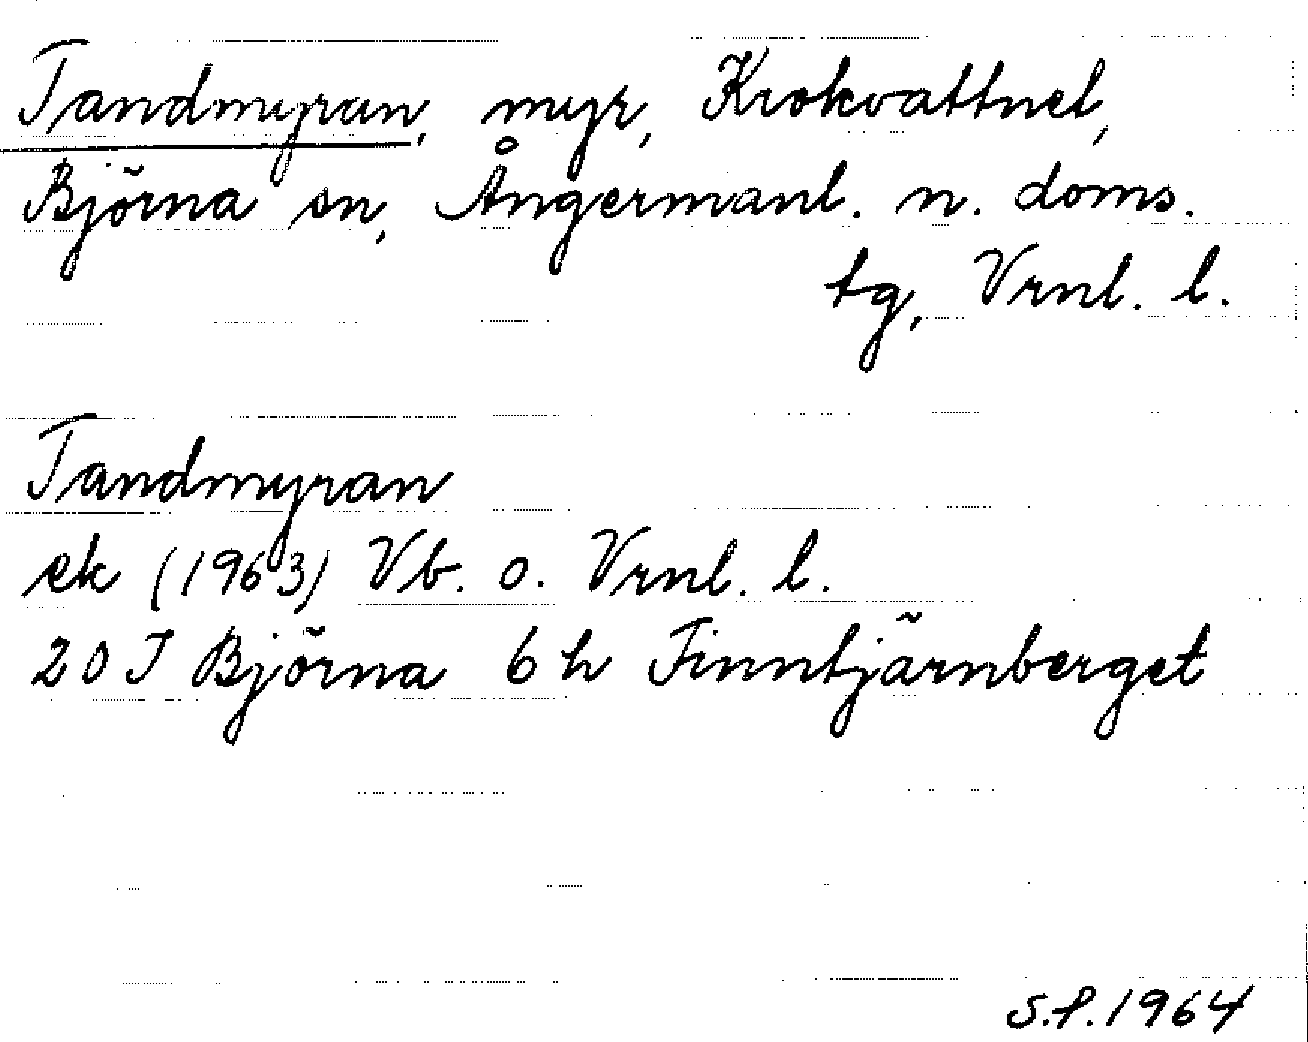 Tandmyran, myr, Krokvattnet,
Björna sn, Ångermanl. n. doms.
tg, Vrnl. l.
Tandmyran
ek (1963) Vb. o. Vrnl. l.
20 I Björna 6 h Finntjärnberget
S.P. 1964